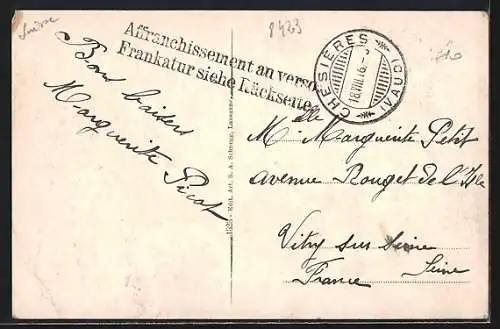 Suisse
8423
Affranchissement au verso
Frankatur siehe Rückseite
CHESIERES (VAUD)
18.VIII.16.
Bons baisers
Marguerite Picot
Mlle Marguerite Petit
avenue Rouget de l'Isle
Vitry sur Seine
Seine
France
Edit. Art. S. A. Schnegg, Lausanne